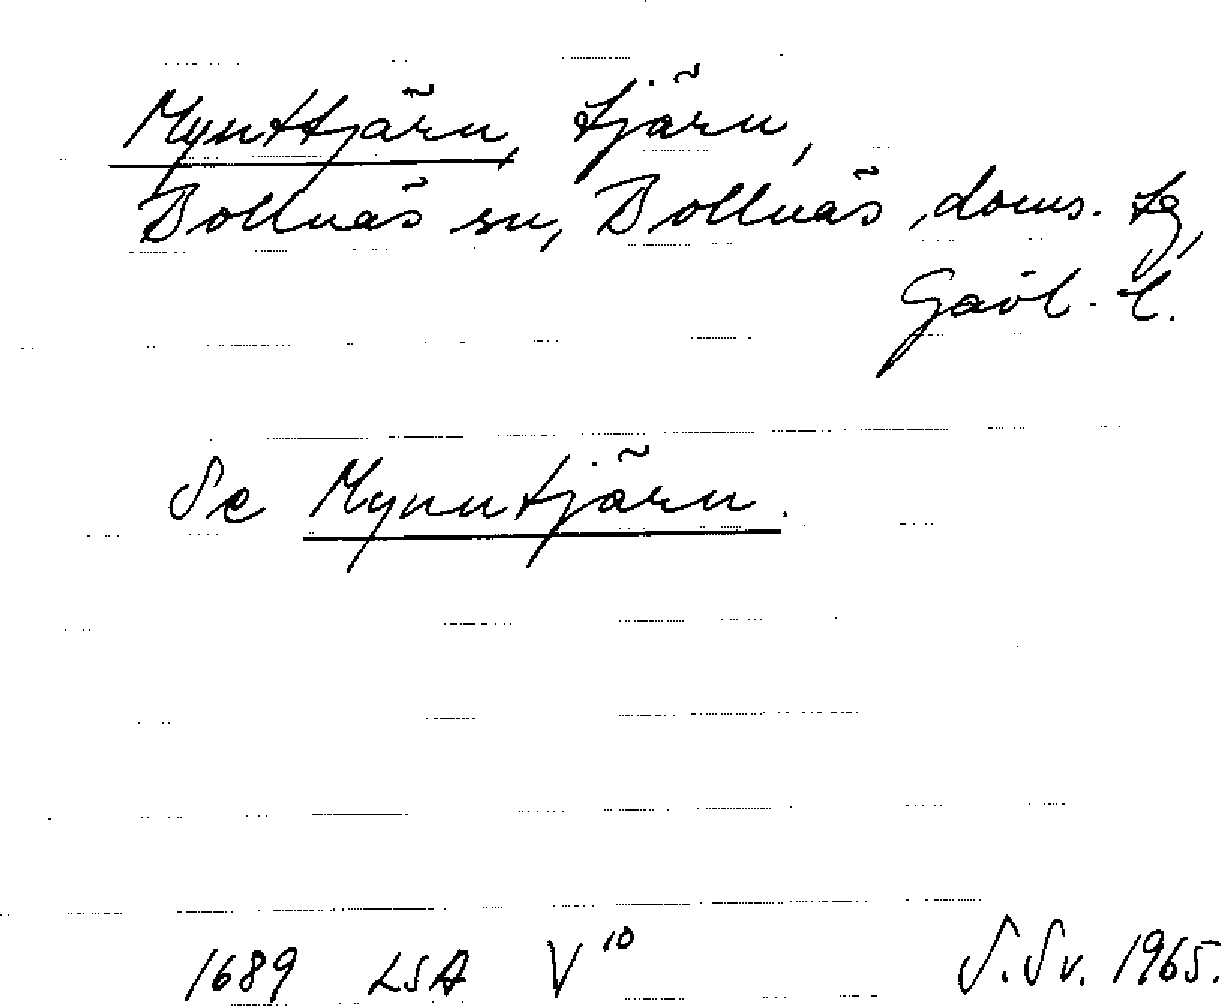 Mynttjärn, tjärn,
Bollnäs sn, Bollnäs doms. tg,
Gävl. l.
Se Mynntjärn.
1689 LSA V10 S.Sv. 1965.